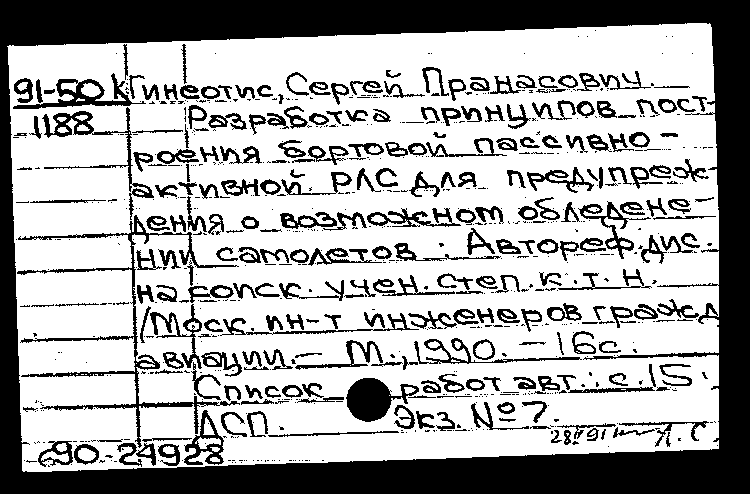 91-50 К Гинеотис, Сергей Пранасович.
1188 Разработка принципов пост-
роения бортовой пассивно-
активной РЛС для предупреж-
дения о возможном обледене-
нии самолетов : Автореф. дис.
на соиск. учен. степ. к.т.н.
/Моск. ин-т инженеров гражд
авиации. – М., 1990. – 16с.
Список работ авт.: с.15.
ДСП. Экз. №7.
690-24928 А.С.